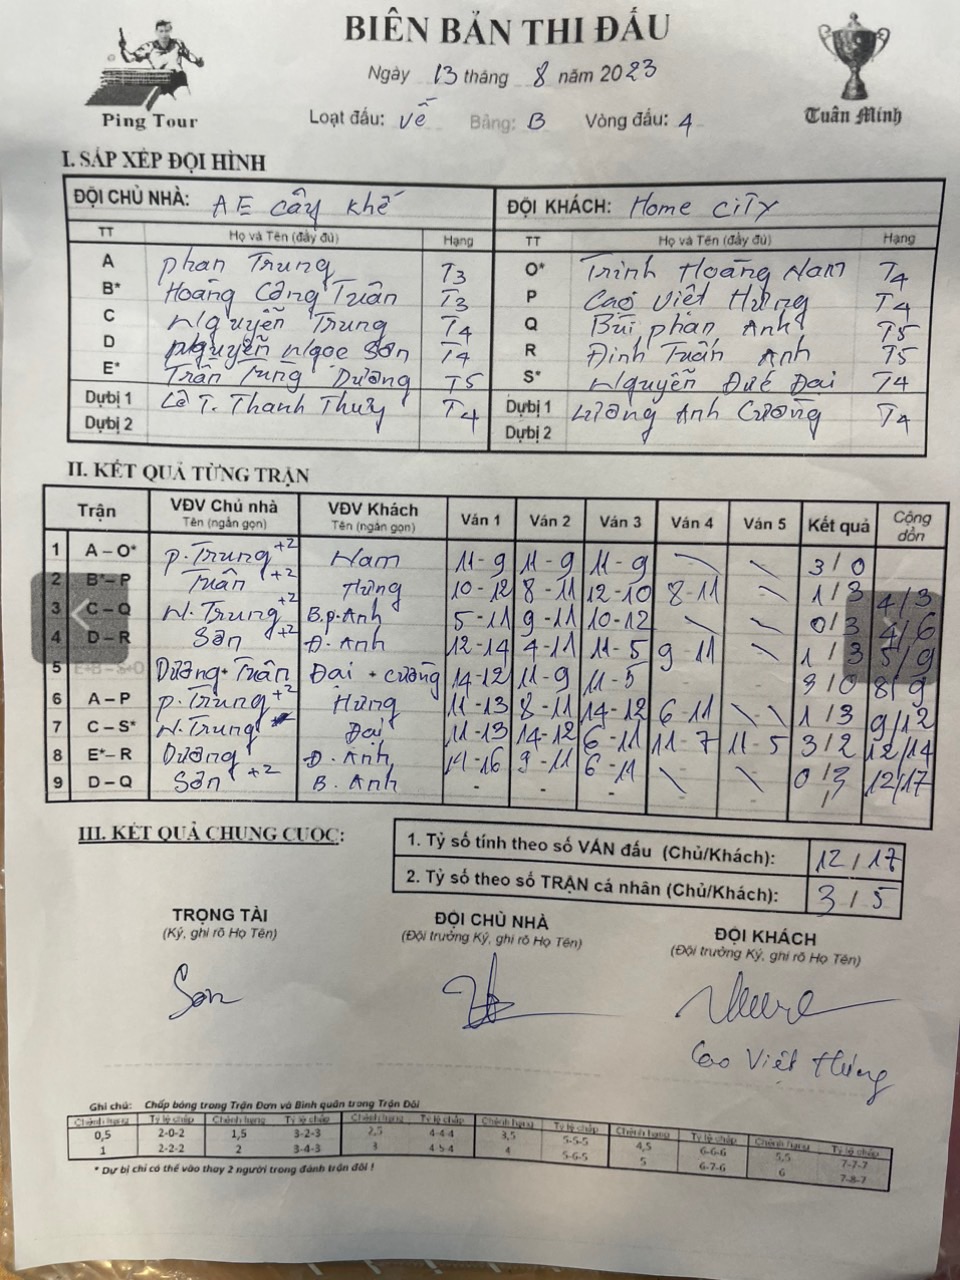 BIÊN BẢN THI ĐẤU
Ping Tour
Tuấn Minh
Ngày 13 tháng 8 năm 2023
Loạt đấu: Về Bảng: B Vòng đấu: 4
I. SẮP XẾP ĐỘI HÌNH
ĐỘI CHỦ NHÀ: AE Cây Khế ĐỘI KHÁCH: Home CiTY
TT Họ và Tên (đầy đủ) Hạng TT Họ và Tên (đầy đủ) Hạng
A Phan Trung T3 O* Trịnh Hoàng Nam T4
B* Hoàng Công Tuấn T3 P Cao Việt Hưng T4
C Nguyễn Trung T4 Q Bùi Phan Anh T5
D Nguyễn Ngọc Sơn T4 R Đinh Tuấn Anh T5
E* Trần Tùng Dương T5 S* Nguyễn Đức Đại T4
Dự bị 1 Lê T. Thanh Thủy T4 Dự bị 1 Lương Anh Cường T4
Dự bị 2 Dự bị 2
II. KẾT QUẢ TỪNG TRẬN
Trận VĐV Chủ nhà Tên (ngắn gọn) VĐV Khách Tên (ngắn gọn) Ván 1 Ván 2 Ván 3 Ván 4 Ván 5 Kết quả Cộng dồn
1 A – O* P. Trung +2 Nam 11-9 11-9 11-9 3/0
2 B* – P Tuấn +2 Hưng 10-12 8-11 12-10 8-11 1/3 4/3
3 C – Q N. Trung +2 B.P. Anh 5-11 9-11 10-12 0/3 4/6
4 D – R Sơn +2 Đ. Anh 12-14 4-11 11-5 9-11 1/3 5/9
5 E+B – S+O Dương + Tuấn Đại + Cường 14-12 11-9 11-5 3/0 8/9
6 A – P P. Trung +2 Hưng 11-13 8-11 14-12 6-11 1/3 9/12
7 C – S* N. Trung Đại 11-13 14-12 6-11 11-7 11-5 3/2 12/14
8 E* – R Dương Đ. Anh 14-16 9-11 6-11 0/3 12/17
9 D – Q Sơn +2 B. Anh - - - - - /
III. KẾT QUẢ CHUNG CUỘC:
1. Tỷ số tính theo số VÁN đấu (Chủ/Khách): 12/17
2. Tỷ số theo số TRẬN cá nhân (Chủ/Khách): 3/5
TRỌNG TÀI ĐỘI CHỦ NHÀ ĐỘI KHÁCH
(Ký, ghi rõ Họ Tên) (Đội trưởng Ký, ghi rõ Họ Tên) (Đội trưởng Ký, ghi rõ Họ Tên)
Sơn
Cao Việt Hưng
Ghi chú: Chấp bóng trong Trận Đơn và Bình quân trong Trận Đôi
Chênh hạng Tỷ lệ chấp Chênh hạng Tỷ lệ chấp Chênh hạng Tỷ lệ chấp Chênh hạng Tỷ lệ chấp Chênh hạng Tỷ lệ chấp Chênh hạng Tỷ lệ chấp
0,5 2-0-2 1,5 3-2-3 2,5 4-4-4 3,5 5-5-5 4,5 6-6-6 5,5 7-7-7
1 2-2-2 2 3-4-3 3 4-5-4 4 5-6-5 5 6-7-6 6 7-8-7
* Dự bị chỉ có thể vào thay 2 người trong đánh trận đôi !